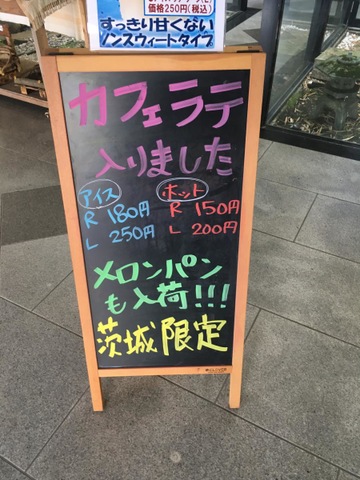 価格250円(税込)
すっきり甘くない
ノンスウィートタイプ
カフェラテ
入りました
アイス ホット
R 180円 R 150円
L 250円 L 200円
メロンパン
も入荷!!!
茨城限定